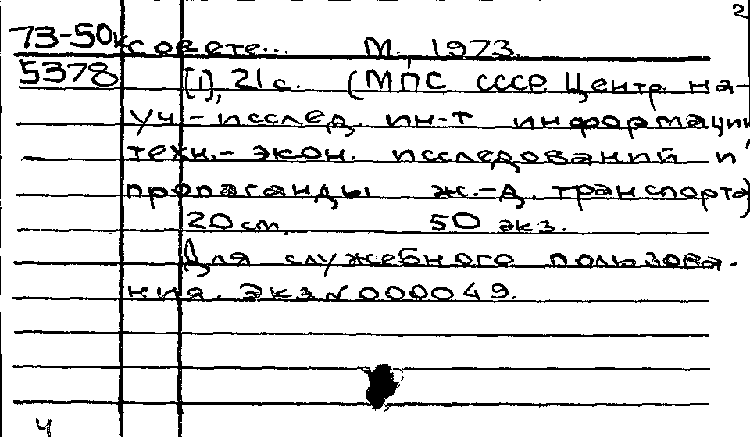 2
73-50к совете... М., 1973.
5378 [1], 21 с. (МПС СССР Центр. на-
уч.-исслед. ин-т информации,
техн.-экон. исследований и
пропаганды ж.-д. транспорта)
20 см. 50 экз.
Для служебного пользова-
ния. Экз. № 000049.
Ч